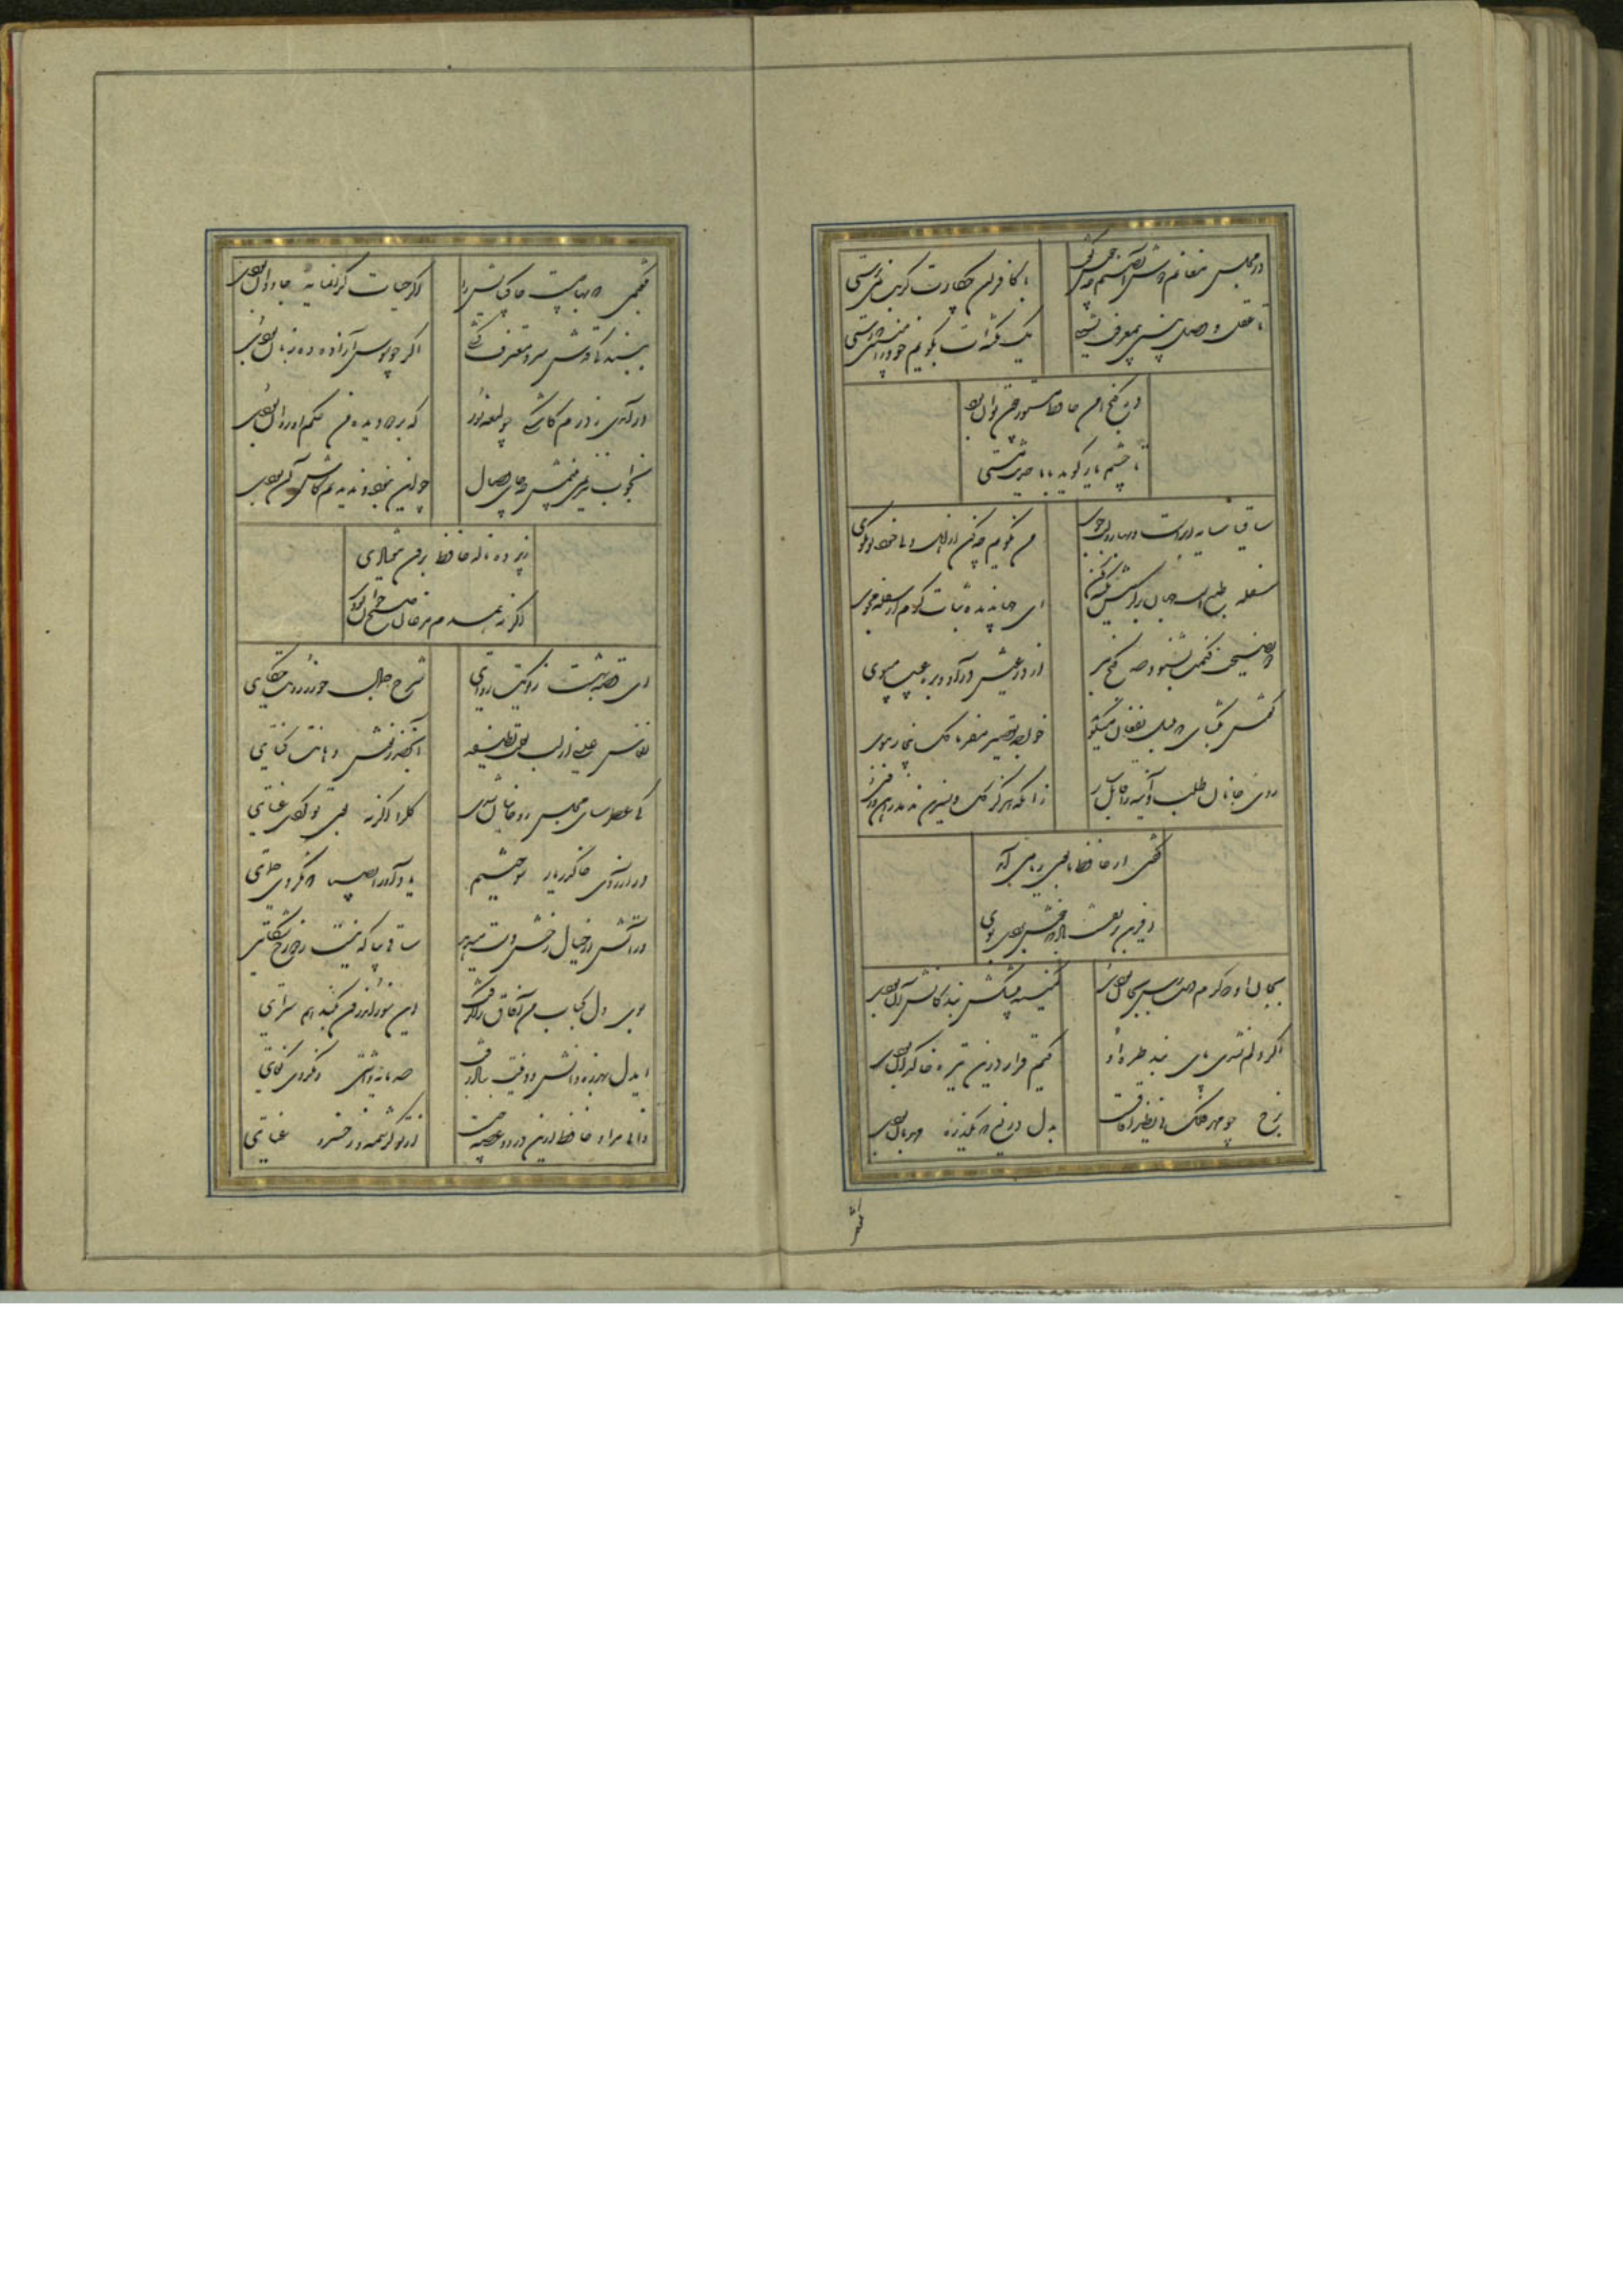 در مجلس مغانم دوش آن صنم چه خوش گفت با کافران چکارت گر بت نمی پرستی
تا عقل و فضل بینی بیمعرفت نشینی یک نکته ات بگویم خود را مبین که رستی
در کنج حافظ مستور چون توان بود
تا چشم یار گوید با ما حدیث مستی
ساقیا سایه ابرست و بهار و لب جوی من نگویم چه کن ار اهل دلی خود تو بگوی
سفله طبع است جهان بر کرمش تکیه مکن ای جهاندیده ثبات کرم از سفله مجوی
دو نصیحت کنمت بشنو و صد گنج ببر از در عیش درآ و بره عیب مپوی
بگشای که بلبل بفغان میگوید خواجه تقصیر مفرما گل ببوی
روی جانان طلبی آینه را قابل ساز زانکه هرگز گل و نسرین ندمد ز آهن و روی
گفتی از حافظ ما بوی ریا می آید
آفرین بر نفست باد که خوش بردی بوی
بجان او که گرم دسترس بجان بودی کمینه پیشکش بندگانش آن بودی
اگر دلم نشدی پای بند طره او کیم قرار درین تیره خاکدان بودی
برخ چو مهر فلک بی نظیر آفاقست بدل دریغ که یکذره مهربان بودی
بگفتمی که بها چیست خاک پایش را اگر حیات گرانمایه جاودان بودی
به بندگی قدش سرو معترف گشتی اگر چو سوسن آزاده ده زبان بودی
در آمدی ز درم کاشکی چو لمعه نور که بر دو دیده من حکم او روان بودی
بخواب نیز نمی بینمش چه جای وصال چو این نبود و ندیدیم کاش آن بودی
ز پرده ناله حافظ برون کی افتادی
اگر نه همدم مرغان صبح خوان بودی
ای قصه بهشت ز کویت روایتی شرح جمال حور ز رویت حکایتی
انفاس عیسی از لب لعلت لطیفه آب خضر ز نوش دهانت کنایتی
کی عطرسای مجلس روحانیان شدی گل را اگر نه بوی تو کردی عنایتی
در آرزوی خاک در یار سوختیم یاد آور ای صبا که نکردی حمایتی
در آتش ار خیال رخش دست میدهد ساقی بیا که نیست ز دوزخ شکایتی
بوی دل کباب من آفاق را گرفت وین سوز اندرون بکند هم سرایتی
ای دل بهرزه دانش و وقتت بباد رفت صد مایه داشتی و نکردی کفایتی
دانی مراد حافظ ازین درد و غصه چیست از تو کرشمه و ز خسرو عنایتی